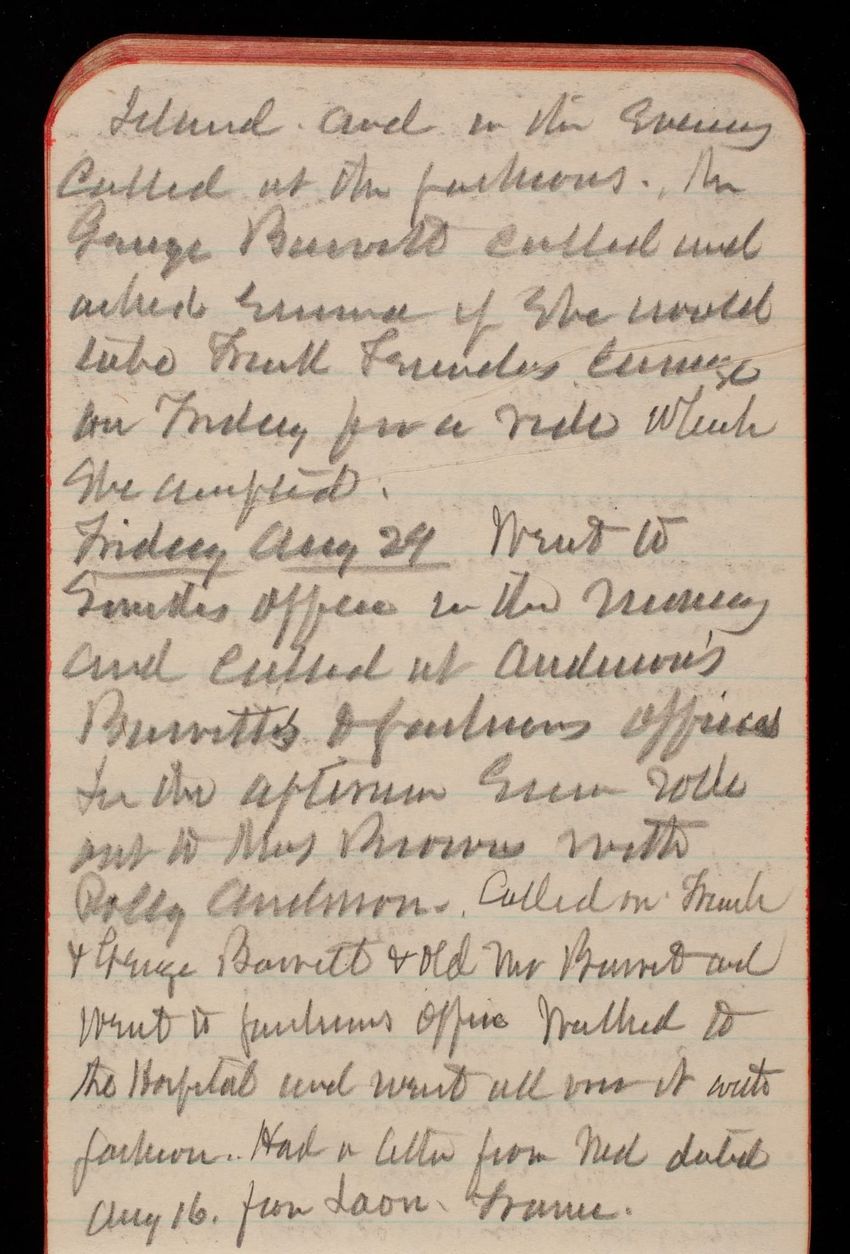 Island. and in the Evening
Called at the Jacksons. Mr
George Barrett called and
asked Emma if she would
take Frank Saunders Carriage
on Friday for a ride Which
She accepted.
Friday Aug 29 Went to
Smiths Office in the Morning
and called at Anderson's
Barretts & Jacksons offices
In the afternoon Emm rode
out to Mrs Browns with
Polly Anderson. Called on Frank
& George Barrett & Old Mr Barret and
Went to Jacksons Office Walked to
the Hospital and went all over it with
Jackson. Had a letter from Ned dated
Aug 16. from Laon. France.